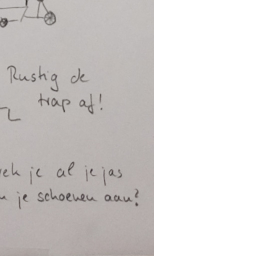 Rustig de
trap af!
je al je jas
je schoenen aan?